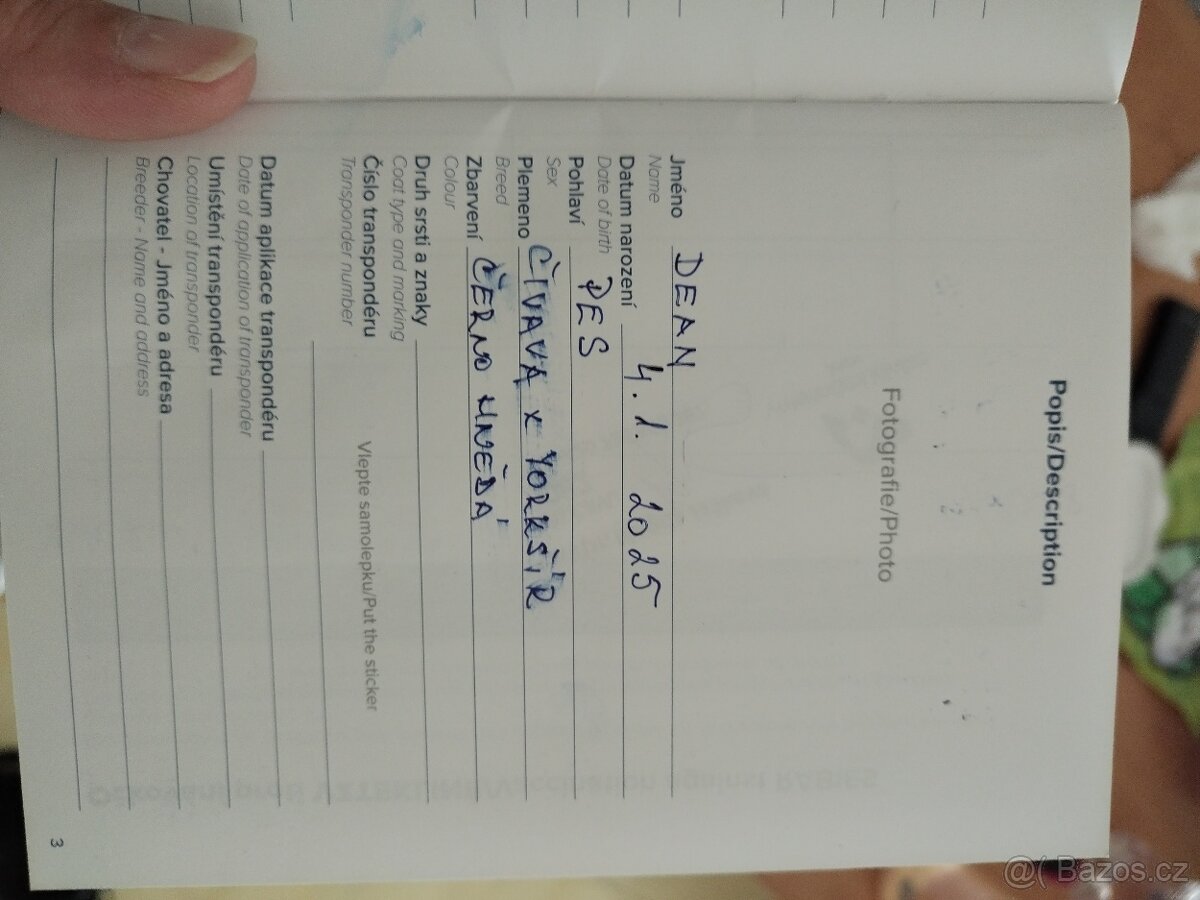 Popis/Description
Fotografie/Photo
Jméno DEAN
Name
Datum narození 4. 1. 2025
Date of birth
Pohlaví PES
Sex
Plemeno ČIVAVA x YORKŠÍR
Breed
Zbarvení ČERNO HNĚDÁ
Colour
Druh srsti a znaky
Coat type and marking
Číslo transpondéru
Transponder number
Vlepte samolepku/Put the sticker
Datum aplikace transpondéru
Date of application of transponder
Umístění transpondéru
Location of transponder
Chovatel - Jméno a adresa
Breeder - Name and address
3
@( Bazos.cz